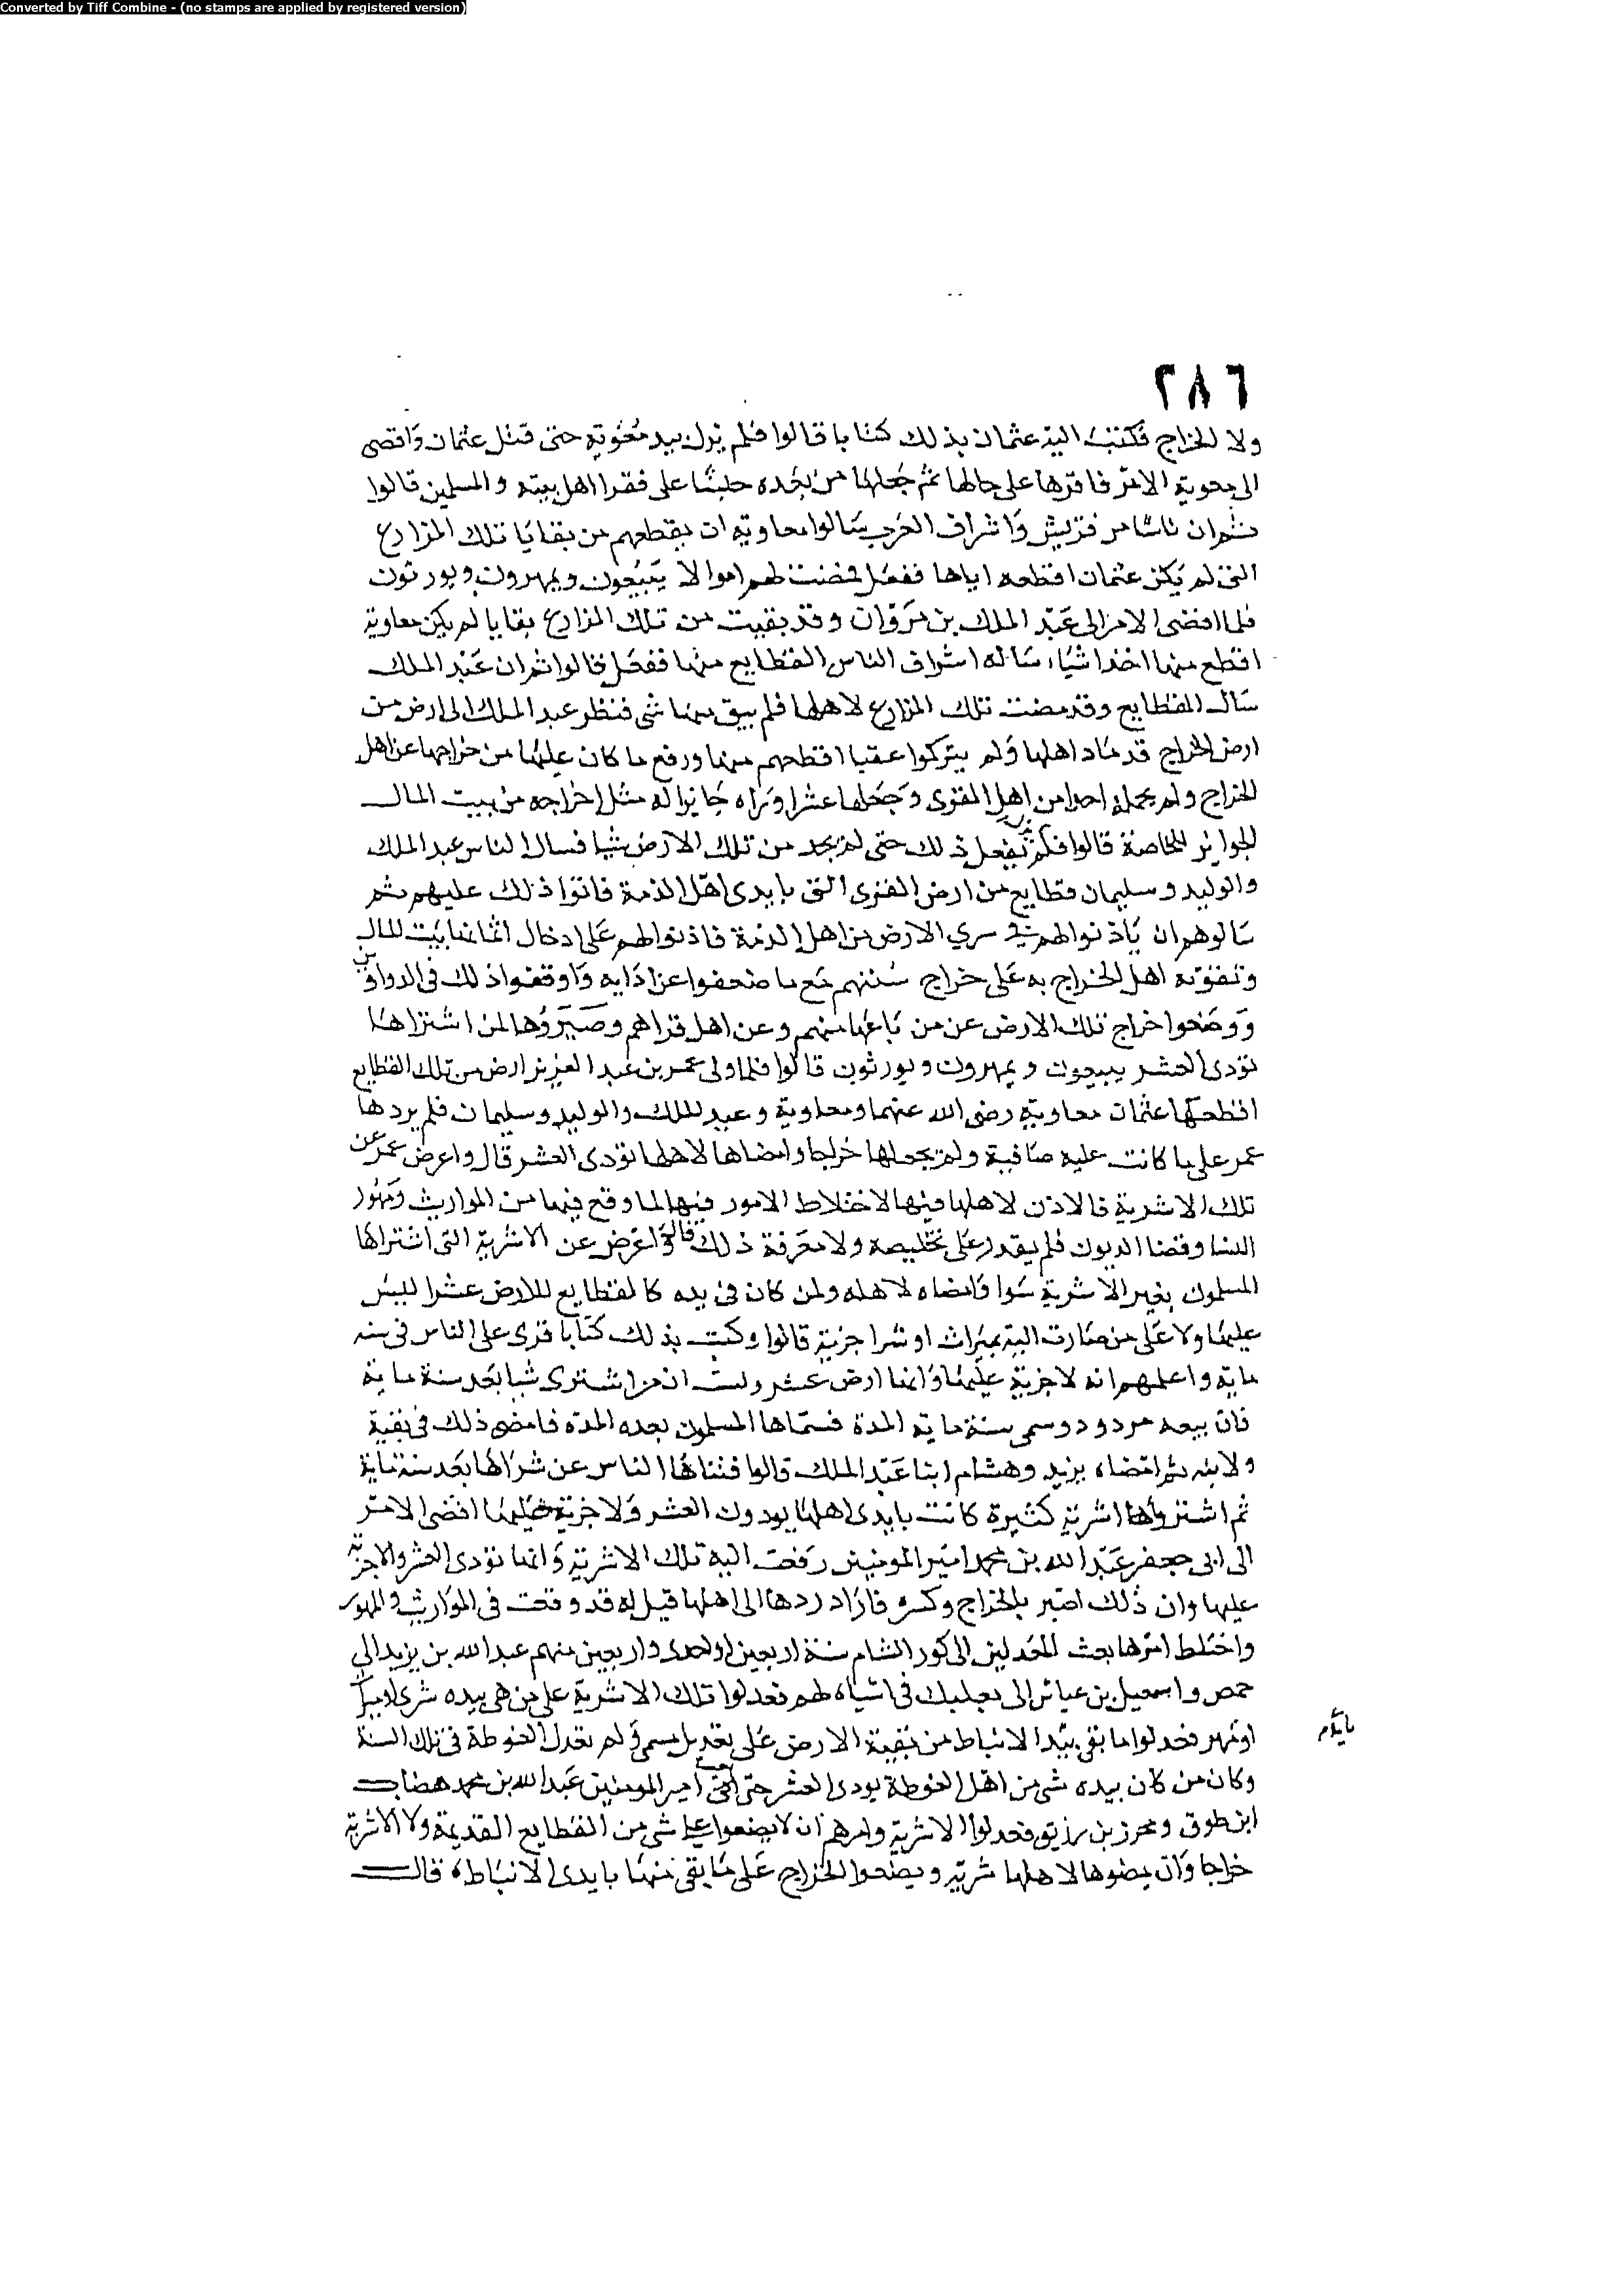 Converted by Tiff Combine - (no stamps are applied by registered version)
٢٨٦
ولا الخراج فكتب اليه عثمان بذلك كتابا قالوا فلم يزل بيد معوية حتى قتل عثمان وافضى
الى معوية الامر فاقرها على حالها ثم جعلها من بعده حبسا على فقرا اهل بيته والمسلمين قالوا
ثم ان ناسا من قريش واشراف العرب سالوا معاوية ان يقطعهم من بقايا تلك المزارع
التى لم يكن عثمان اقطعه اياها ففعل فمضت لهم اموالا يبيعون ويمهرون ويورثون
فلما افضى الامر الى عبد الملك بن مروان وقد بقيت من تلك المزارع بقايا لم يكن معاوية
اقطع منها احدا شيا، ساله اشراف الناس القطايع منها ففعل قالوا ثم ان عبد الملك
سال القطايع وقد مضت تلك المزارع لاهلها فلم يبق منها شى فنظر عبد الملك الى ارض من
ارض الخراج قد باد اهلها ولم يتركوا عقبا اقطعهم منها ورفع ما كان عليها من خراجها عن اهل
الخراج ولم يحمله احدا من اهل القرى وجعلها عشرا وراه جايزا له مثل اخراجه من بيت المال
الجوايز الخاصة قالوا فلم يزل يفعل ذلك حتى لم يجد من تلك الارض شيا فسال الناس عبد الملك
والوليد وسليمان قطايع من ارض القرى التى بايدى اهل الذمة فابوا ذلك عليهم ثم
سالوهم ان ياذنوا لهم فى شرى الارض من اهل الذمة فاذنوا لهم على ادخال اثمانها بيت المال
وتقوية اهل الخراج به على خراج سنتهم مع ما ضعفوا عن ادايه واوقفوا ذلك فى الدواوين
ووضعوا خراج تلك الارض عن من باعها منهم وعن اهل قراهم وصيروها لمن اشتراها
تؤدى العشر يبيعون ويمهرون ويورثون قالوا فلما ولى عمر بن عبد العزيز ارض من تلك القطايع
اقطعها عثمان معاوية رضى الله عنهما ومعاوية وعبد الملك والوليد وسليمان فلم يردها
عمر على ما كانت عليه صافية ولم يجعلها خراجا وامضاها لاهلها تؤدى العشر قال واعرض عمر عن
تلك الاشرية فالاذن لاهلها فيها لاختلاط الامور فيها لما وقع فيها من المواريث ومهور
النسا وقضا الديون فلم يقدر على تخليصه ولا معرفة ذلك قالوا واعرض عن الاشرية التى اشتراها
المسلمون بغير الاشرية سوا وامضاه لاهله ولمن كان فى يده كالقطايع للارض عشرا ليس
عليها ولا على من صارت اليه بميراث او شرا جزية قالوا وكتب بذلك كتابا قرى على الناس فى سنه
مايه واعلمهم انه لا جزية عليها وانها ارض عشر وكتب ان من اشترى شيا بعد سنة ماية
فان بيعه مردود وسمى سنة ماية المدة فسماها المسلمون بعده المدة فامضى ذلك فى بقية
ولايته ثم امضاه يزيد وهشام ابنا عبد الملك قالوا فتناها الناس عن شراها بعد سنة ماية
ثم اشتروا اشرية كثيرة كانت بايدى اهلها يودون العشر ولا جزية عليها افضى الامر
الى ابى جعفر عبد الله بن محمد امير المومنين رفعت اليه تلك الاشرية وانها تؤدى العشر ولا جزية
عليها وان ذلك اضر بالخراج وكسره فاراد ردها الى اهلها قيل له قد وقعت فى المواريث والمهور
واختلط امرها بعث المعدلين الى كور الشام سنة اربعين او احدى واربعين منهم عبد الله بن يزيد الى
حمص واسمعيل بن عياش الى بعلبك فى اشباه لهم فعدلوا تلك الاشرية على من هى بيده شرى او ميراث
او مهر فعدلوا ما بقى بيد الانباط من بقية الارض على تعديل مسمى ولم تعدل الغوطة فى تلك السنة
وكان من كان بيده شى من اهل الغوطة يودى العشر حتى بعث امير المومنين عبد الله بن محمد هضاب
ابن طوق ومحرز بن رزيق فعدلوا الاشرية وامرهم ان لا يضعوا على شى من القطايع القديمة ولا الاشرية
خراجا وان يمضوها لاهلها شرية ويضعوا الخراج على ما بقى منها بايدى الانباط، قال